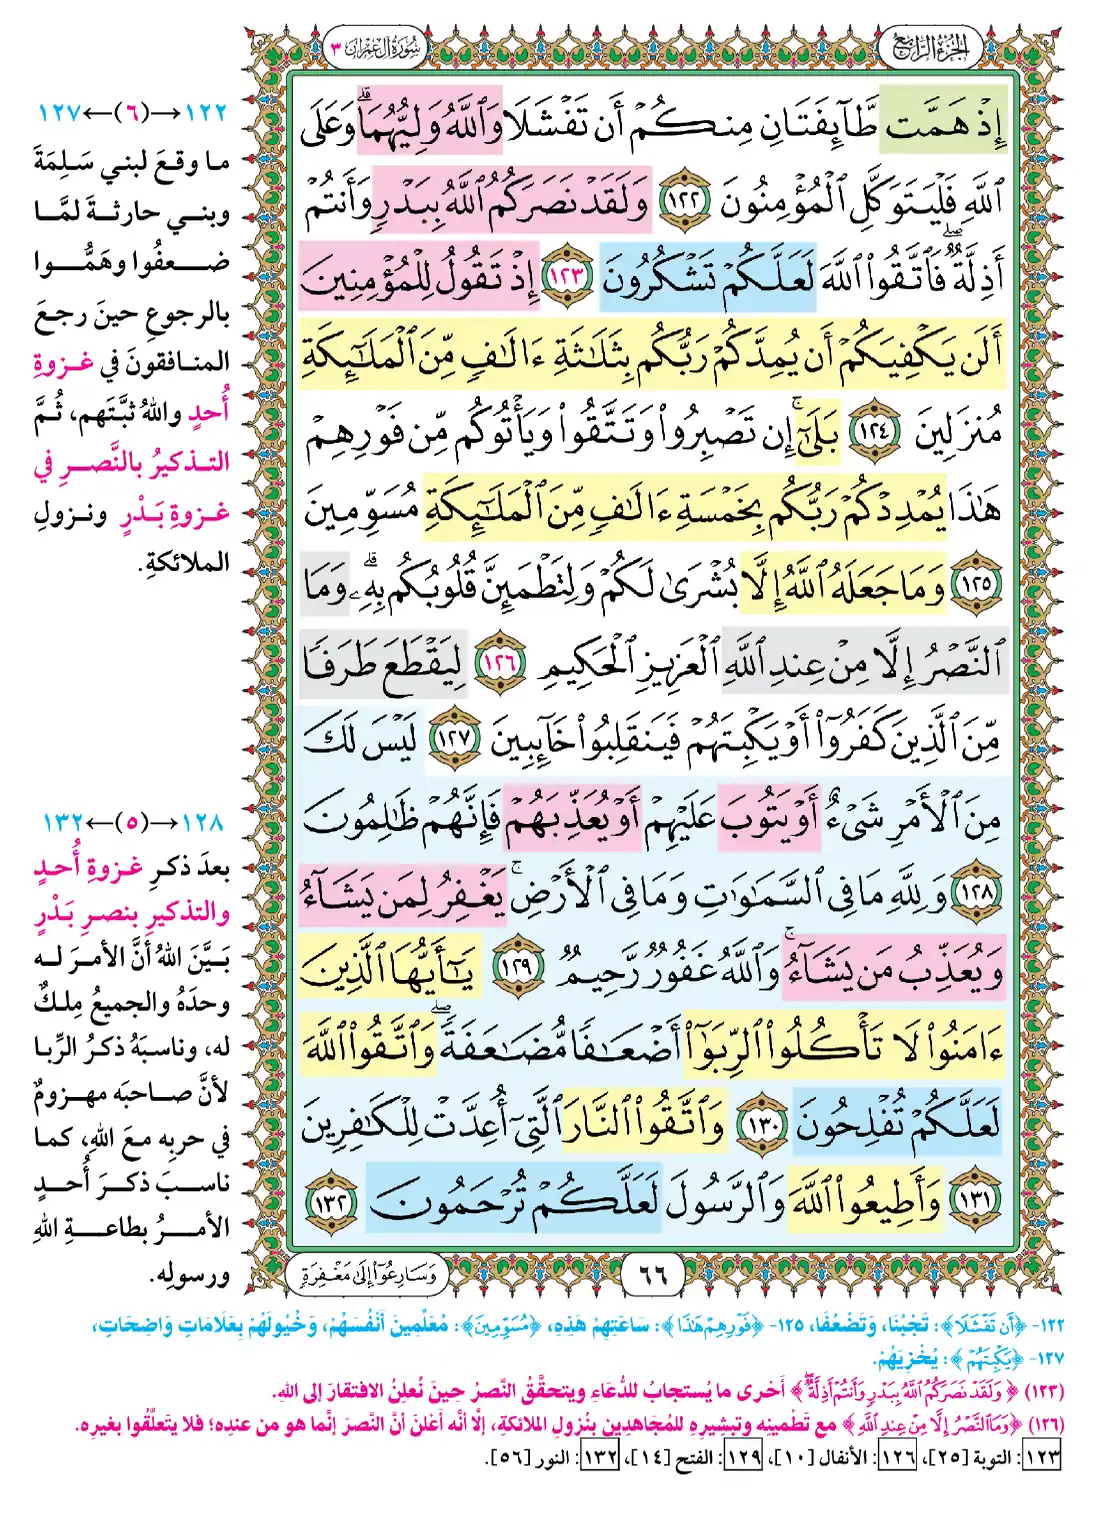 الجزء الرابع
سورة آل عمران ٣
إِذْ هَمَّت طَّآئِفَتَانِ مِنكُمْ أَن تَفْشَلَا وَٱللَّهُ وَلِيُّهُمَا ۗ وَعَلَى
ٱللَّهِ فَلْيَتَوَكَّلِ ٱلْمُؤْمِنُونَ ١٢٢ وَلَقَدْ نَصَرَكُمُ ٱللَّهُ بِبَدْرٍ وَأَنتُمْ
أَذِلَّةٌ ۖ فَٱتَّقُوا۟ ٱللَّهَ لَعَلَّكُمْ تَشْكُرُونَ ١٢٣ إِذْ تَقُولُ لِلْمُؤْمِنِينَ
أَلَن يَكْفِيَكُمْ أَن يُمِدَّكُمْ رَبُّكُم بِثَلَـٰثَةِ ءَالَـٰفٍ مِّنَ ٱلْمَلَـٰٓئِكَةِ
مُنزَلِينَ ١٢٤ بَلَىٰٓ ۚ إِن تَصْبِرُوا۟ وَتَتَّقُوا۟ وَيَأْتُوكُم مِّن فَوْرِهِمْ
هَـٰذَا يُمْدِدْكُمْ رَبُّكُم بِخَمْسَةِ ءَالَـٰفٍ مِّنَ ٱلْمَلَـٰٓئِكَةِ مُسَوِّمِينَ
١٢٥ وَمَا جَعَلَهُ ٱللَّهُ إِلَّا بُشْرَىٰ لَكُمْ وَلِتَطْمَئِنَّ قُلُوبُكُم بِهِۦ ۗ وَمَا
ٱلنَّصْرُ إِلَّا مِنْ عِندِ ٱللَّهِ ٱلْعَزِيزِ ٱلْحَكِيمِ ١٢٦ لِيَقْطَعَ طَرَفًا
مِّنَ ٱلَّذِينَ كَفَرُوٓا۟ أَوْ يَكْبِتَهُمْ فَيَنقَلِبُوا۟ خَآئِبِينَ ١٢٧ لَيْسَ لَكَ
مِنَ ٱلْأَمْرِ شَىْءٌ أَوْ يَتُوبَ عَلَيْهِمْ أَوْ يُعَذِّبَهُمْ فَإِنَّهُمْ ظَـٰلِمُونَ
١٢٨ وَلِلَّهِ مَا فِى ٱلسَّمَـٰوَٰتِ وَمَا فِى ٱلْأَرْضِ ۚ يَغْفِرُ لِمَن يَشَآءُ
وَيُعَذِّبُ مَن يَشَآءُ ۚ وَٱللَّهُ غَفُورٌ رَّحِيمٌ ١٢٩ يَـٰٓأَيُّهَا ٱلَّذِينَ
ءَامَنُوا۟ لَا تَأْكُلُوا۟ ٱلرِّبَوٰٓا۟ أَضْعَـٰفًا مُّضَـٰعَفَةً ۖ وَٱتَّقُوا۟ ٱللَّهَ
لَعَلَّكُمْ تُفْلِحُونَ ١٣٠ وَٱتَّقُوا۟ ٱلنَّارَ ٱلَّتِىٓ أُعِدَّتْ لِلْكَـٰفِرِينَ
١٣١ وَأَطِيعُوا۟ ٱللَّهَ وَٱلرَّسُولَ لَعَلَّكُمْ تُرْحَمُونَ ١٣٢
٦٦
وَسَارِعُوٓا۟ إِلَىٰ مَغْفِرَةٍ
١٢٢→(٦)←١٢٧
ما وقعَ لبني سَلِمَةَ
وبنـي حارثـةَ لمَّـا
ضـعفُوا وهَمُّـوا
بالرجوعِ حينَ رجعَ
المنـافقونَ في غـزوةِ
أُحدٍ واللهُ ثبَّتَهم، ثُـمَّ
التـذكيرُ بالنَّصـرِ في
غـزوةِ بَـدْرٍ ونـزولِ
الملائكةِ.
١٢٨→(٥)←١٣٢
بعدَ ذكرِ غـزوةِ أُحـدٍ
والتذكيرِ بنصرِ بَـدْرٍ
بَيَّنَ اللهُ أنَّ الأمرَ لـه
وحدَهُ والجميعُ مِلـكٌ
له، وناسبَهُ ذكرُ الرِّبـا
لأنَّ صـاحبَه مهـزومٌ
في حربِه معَ اللهِ، كمـا
ناسـبَ ذكـرَ أُحـدٍ
الأمـرُ بطاعـةِ اللهِ
ورسولِه.
١٢٢- ﴿أَن تَفْشَلَا﴾: تَجْبُنَا، وَتَضْعُفَا، ١٢٥- ﴿فَوْرِهِمْ هَـٰذَا﴾: سَاعَتِهِمْ هَذِهِ، ﴿مُسَوِّمِينَ﴾: مُعَلِّمِينَ أَنْفُسَهُمْ، وَخُيُولَهُمْ بِعَلَامَاتٍ وَاضِحَاتٍ،
١٢٧- ﴿يَكْبِتَهُمْ﴾: يُخْزِيَهُمْ.
(١٢٣) ﴿وَلَقَدْ نَصَرَكُمُ ٱللَّهُ بِبَدْرٍ وَأَنتُمْ أَذِلَّةٌ ۖ﴾ أَحْرى ما يُستجابُ للدُّعَاءِ ويتحقَّقُ النَّصرُ حِينَ نُعلِنُ الافتقارَ إلى اللهِ.
(١٢٦) ﴿وَمَا ٱلنَّصْرُ إِلَّا مِنْ عِندِ ٱللَّهِ﴾ مع تَطْمينِه وتبشيرِه للمُجَاهدِين بنُزولِ الملائكةِ، إلَّا أنَّه أَعْلَنَ أنَّ النَّصرَ إنَّما هو من عندِه؛ فلا يتعلَّقُوا بغيرِه.
١٢٣: التوبة [٢٥]، ١٢٦: الأنفال [١٠]، ١٢٩: الفتح [١٤]، ١٣٢: النور [٥٦].